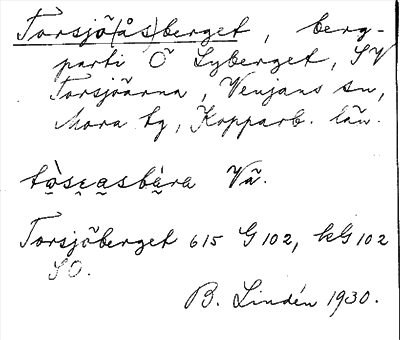 Torsjö(ås)berget, berg-
parti Ö Lyberget, SV
Torsjöarna, Venjans sn,
Mora tg, Kopparb. län.
Vã.
Torsjöberget 615 G 102, kG 102
SO.
B. Lindén 1930.